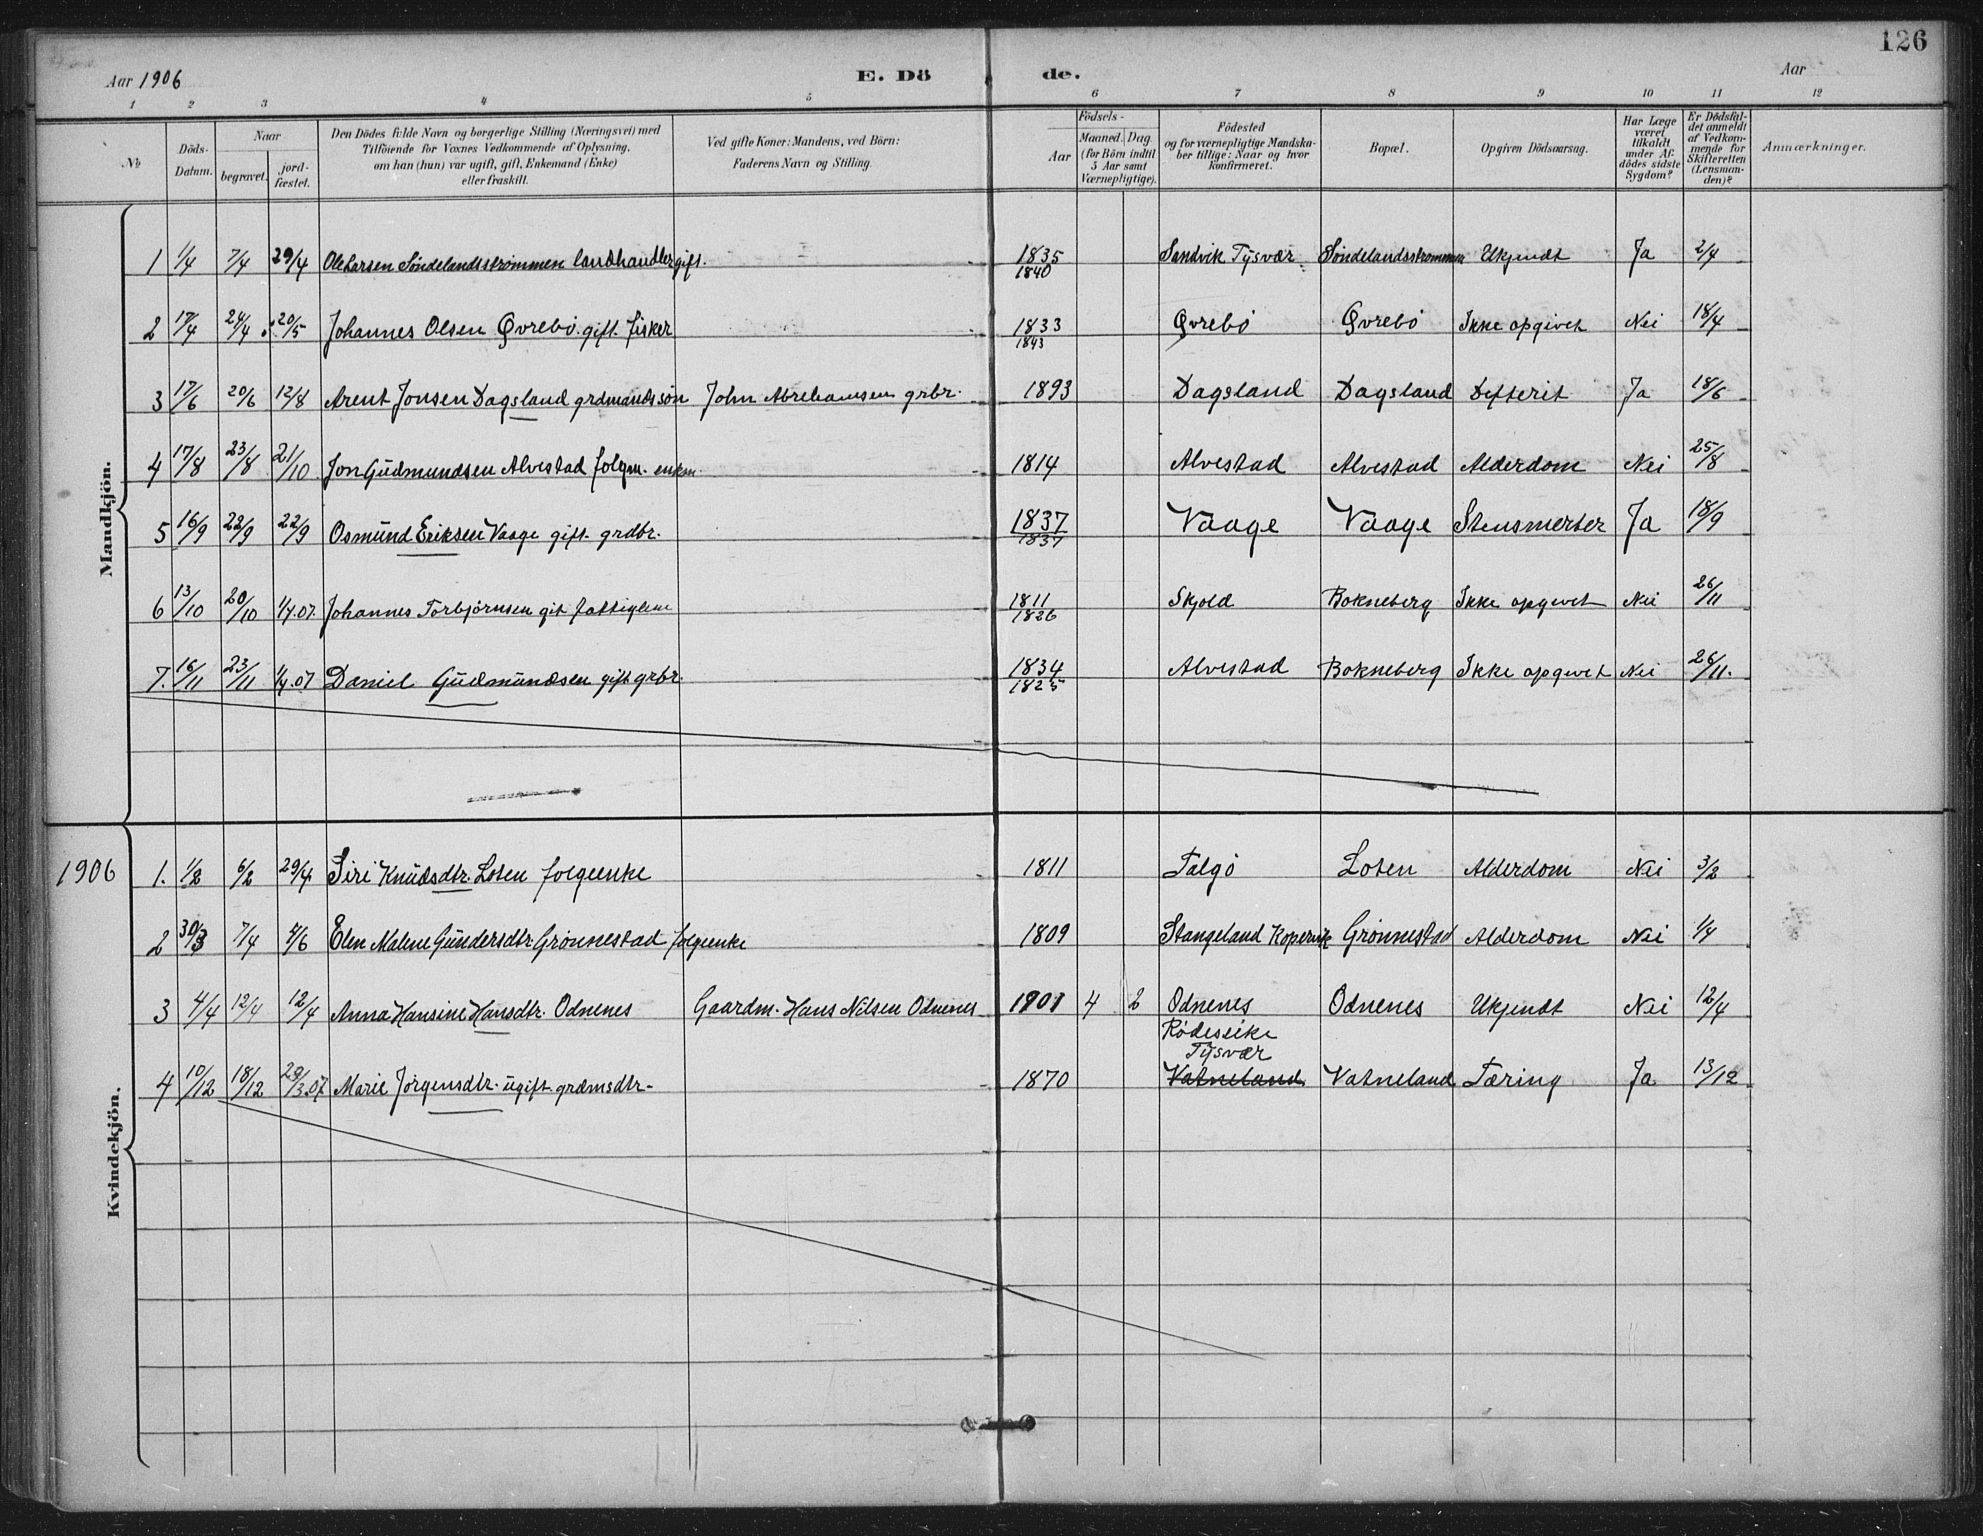 126
Aar 1906 E. Dö de. Aar
1 2 3 4 5 6 7 8 9 10 11 12
No
Döds-Datum.
Naar
begravet.
jord-fæstet.
Den Dödes fulde Navn og borgerlige Stilling (Næringsvei) med
Tilföiende for Voxnes Vedkommende af Oplysning,
om han (hun) var ugift, gift, Enkemand (Enke)
eller fraskilt.
Ved gifte Koner: Mandens, ved Börn:
Faderens Navn og Stilling.
Födsels-
Aar
Maaned. Dag.
(for Börn indtil
5 Aar samt
Værnepligtige).
Födested
og for værnepligtige Mandska-
ber tillige: Naar og hvor
konfirmeret.
Bopæl.
Opgiven Dödsaarsag.
Har Læge
været
tilkaldt
under Af-
dödes sidste
Sygdom?
Er Dödsfal-
det anmeldt
af Vedkom-
mende for
Skifteretten
(Lensman-
den)?
Anmærkninger.
Mandkjön.
1 1/4 7/4 29/4 Ole Larsen Söndelandsströmmen landhandler gift. 1835 Sandvik Tysvær Söndelandsstrommen Ukjendt Ja 2/4
1840
2 17/4 24/4 20/5 Johannes Olsen Øvrebö gift. fisker 1833 Øvrebö Øvrebö Ikke opgivet Nei 18/4
1843
3 17/6 20/6 12/8 Arent Jonsen Dagsland grdmandssön John Abrehamsen grbr. 1893 Dagsland Dagsland Difterit Ja 18/6
4 17/8 23/8 21/10 Jon Gudmundsen Alvestad folgm. enkm. 1814 Alvestad Alvestad Alderdom Nei 25/8
5 16/9 22/9 22/9 Osmund Eriksen Vaage gift. grdbr. 1837 Vaage Vaage Stensmerter Ja 18/9
1837
6 13/10 20/10 1/4.07 Johannes Torbjörnsen git fattiglem 1811 Skjold Bokneberg Ikke opgivet Nei 26/11
1826
7. 16/11 23/11 1/4.07 Daniel Gudmundsen gift grbr. 1834 Alvestad Bokneberg Ikke opgivet Nei 26/11.
1825
Kvindekjön.
1906 1. 1/2 6/2 29/4 Siri Knudsdtr. Loten folgeenke 1811 Talgö Loten Alderdom Nei 3/2
2 30/3 7/4 4/6 Elen Malene Gundersdtr. Grönnestad folgeenke 1809 Stangeland Kopervik Grönnestad Alderdom Nei 1/4
3 4/4 12/4 12/4 Anna Hansine Hansdtr. Odnenes Gaardm. Hans Nilsen Odnenes 1901 4 2 Odnenes Odnenes Ukjendt Nei 12/4
Rödessike
Tysvær
4 10/12 18/12 29/3.07 Marie Jörgensdtr. ugift grdmsdtr. 1870 Vatneland Vatneland Tæring Ja 13/12